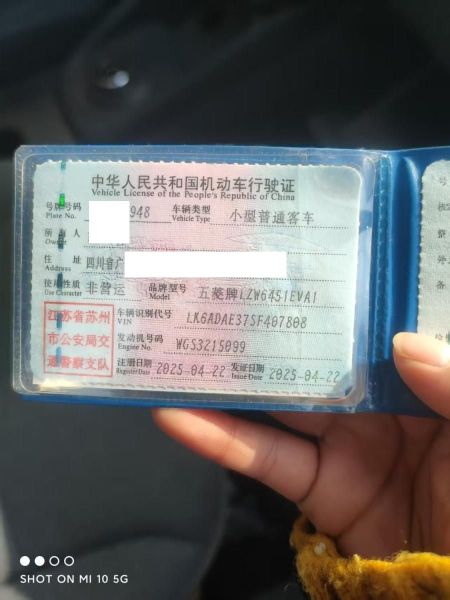 中华人民共和国机动车行驶证
Vehicle License of the People's Republic of China
号牌号码 948 车辆类型 小型普通客车
Plate No. Vehicle Type
所 有 人
Owner
住 址 四川省广
Address
使用性质 非营运 品牌型号 五菱牌LZW6451EVA1
Use Character Model
江苏省苏州 车辆识别代号 LK6ADAE37SF407808
VIN
市公安局交 发动机号码 WGS3215099
Engine No.
通警察支队 注册日期 2025-04-22 发证日期 2025-04-22
Register Date Issue Date
SHOT ON MI 10 5G